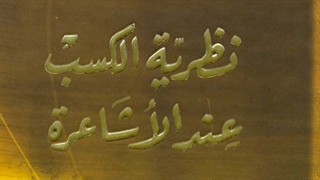 نظريّة الكسبْ
عِند الأشَاعرة